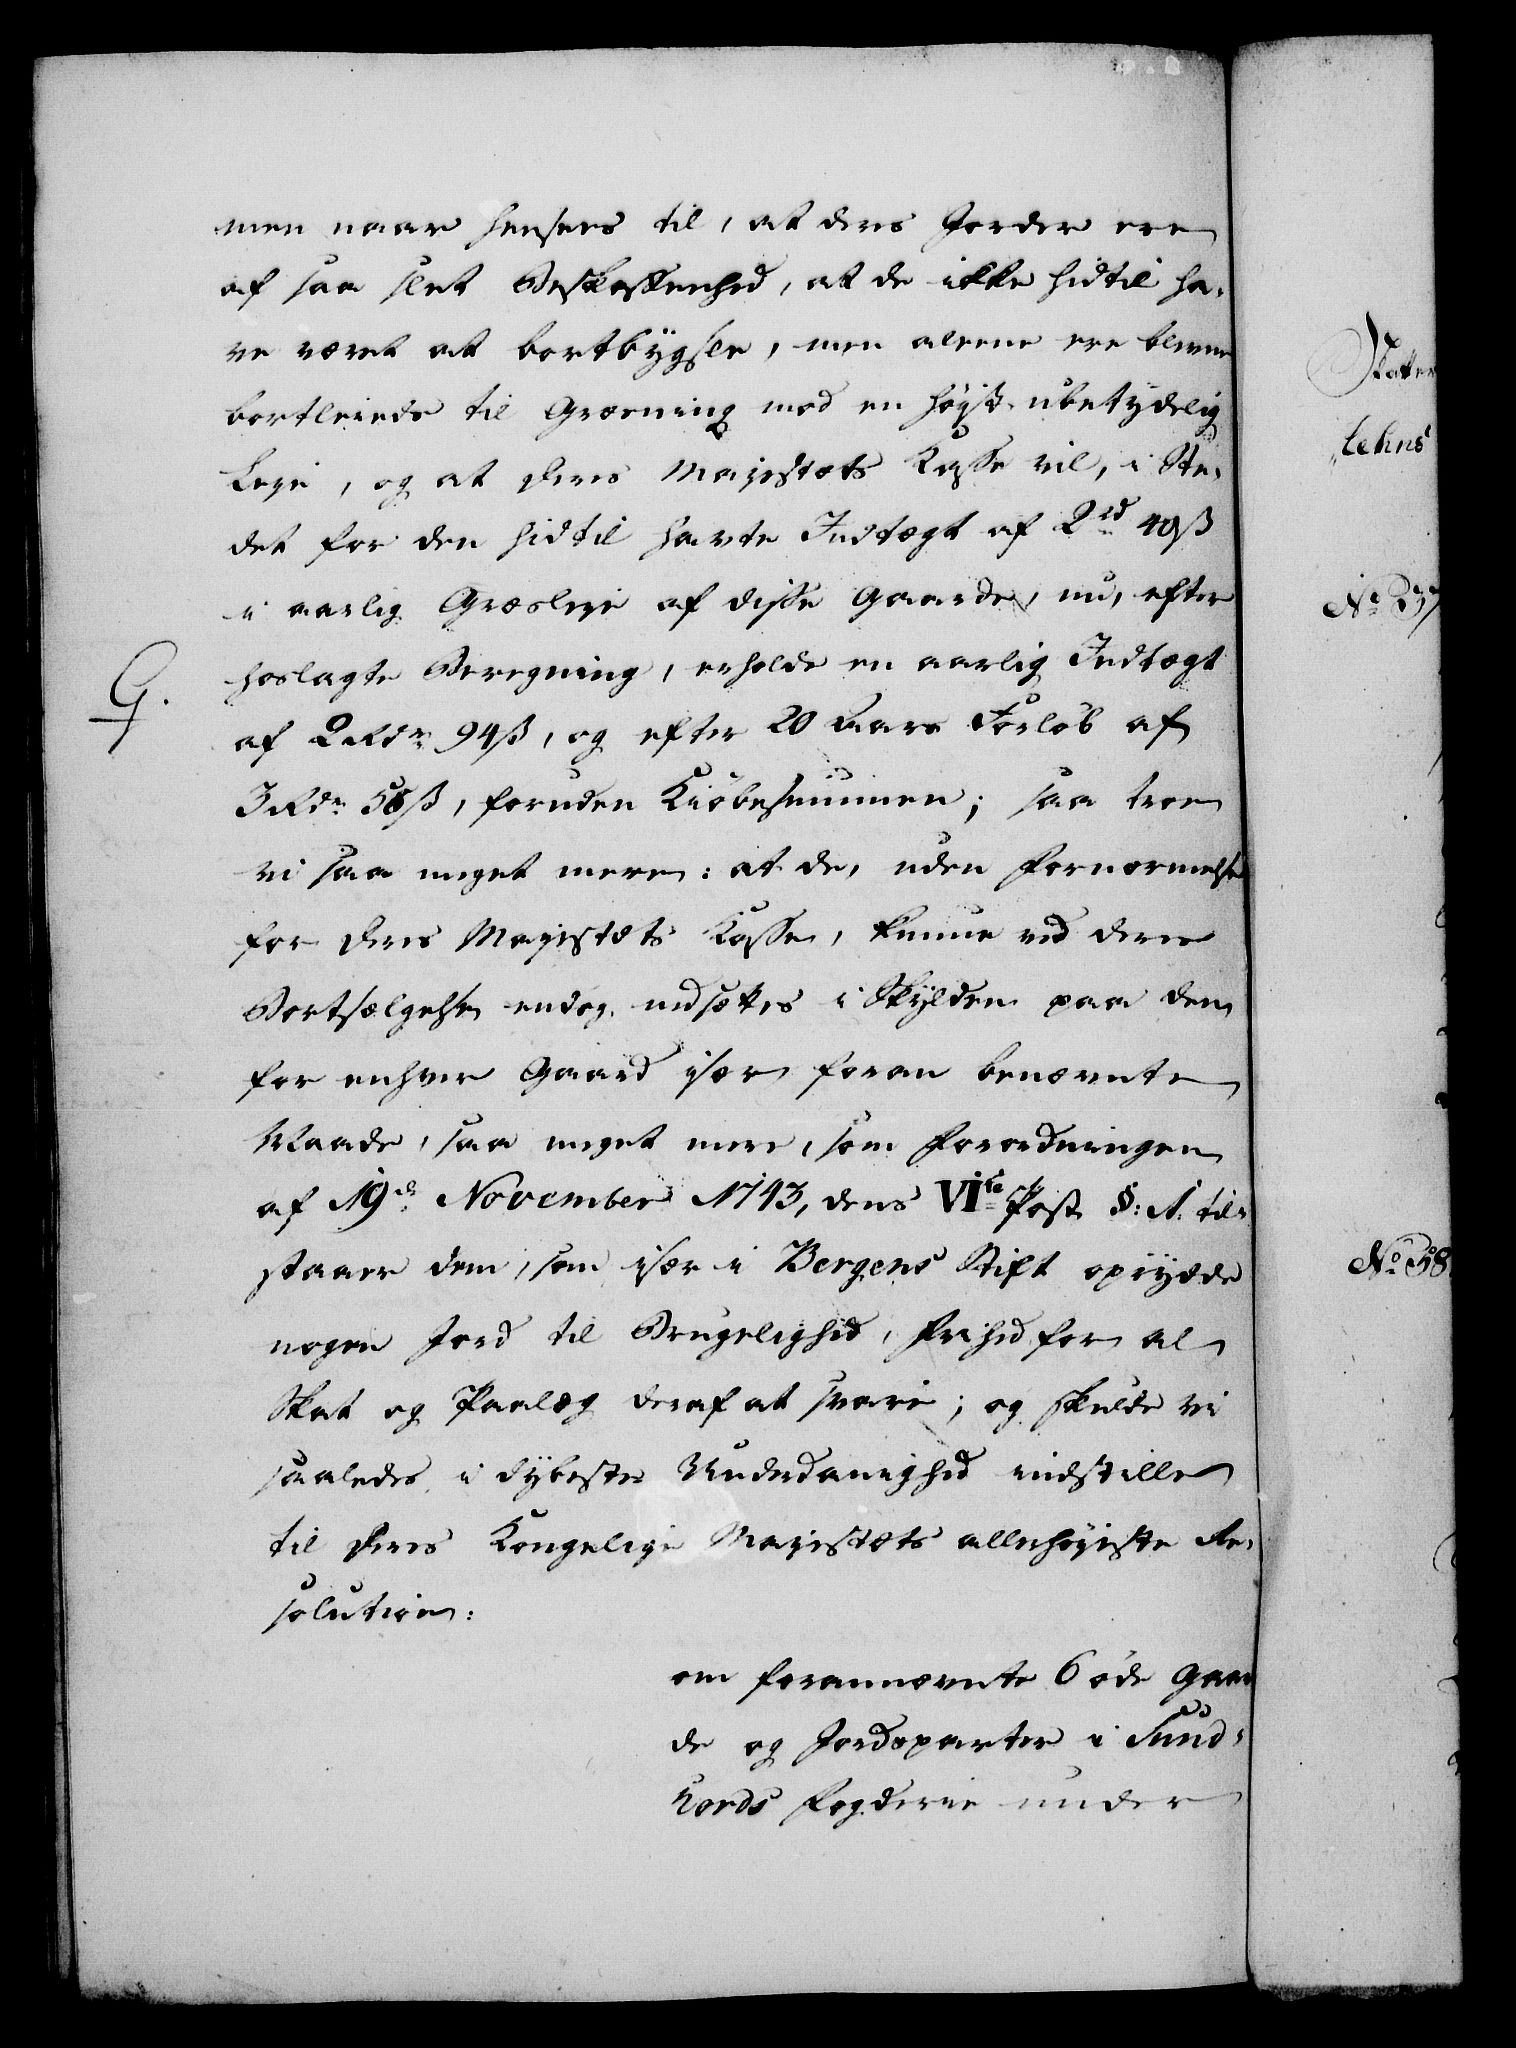 men naar hensees til, at deres Jorder ere
af saa slet Beskaffenhed, at de ikke hidtil ha-
ve været at bortbÿgsle, men aleene ere blevne
bortleiede til Græsning mod en høÿst ubetÿdelig
Leye, og at Deres Majestæts Kasse vil, i Ste-
det for den hidtil havte Indtægt af 2 rd 40 ß
i aarlig Græsleje af disse Gaarde, nu, efter
G.
hoslagte Beregning, erholde en aarlig Indtægt
af 2 Rdr 94 ß, og efter 20 Aars Forløb af
3 Rdr 58 ß, foruden Kiøbesummen; saa troe
vi saa meget mere: at de, uden Fornærmelse
for Deres Majestæts Kasse, kunne ved deres
Bortsælgelse endog nedsættes i Skÿlden paa den
for enhver Gaard især foran benævnte
Maade, saa meget mere, som Forordningen
af 19de November 1743, dens VIte Post §: 1. til-
staaer dem, som især i Bergens Stift oprÿdde
nogen Jord til Brugelighed, Frihed for al
Skat og Paalæg deraf at svare; og skulde vi
saaledes i dÿbeste Underdanighed indstille
til Deres Kongelige Majestæts allerhøjeste Re-
solution:
om forannævnte 6 øde Gaar
de og Jordeparter i Sund-
hords Fogderie under
Skatter
lehns
No 37
No 38